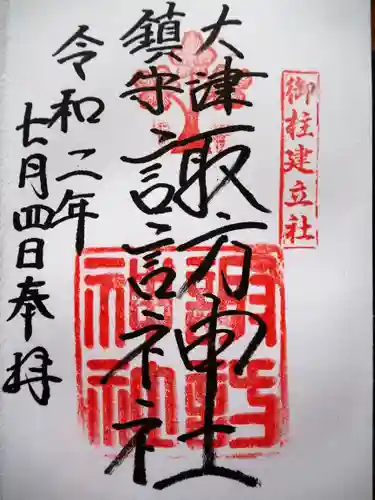 御柱建立社
大津
鎮守
諏訪神社
令和二年
七月四日奉拝
諏訪
神社